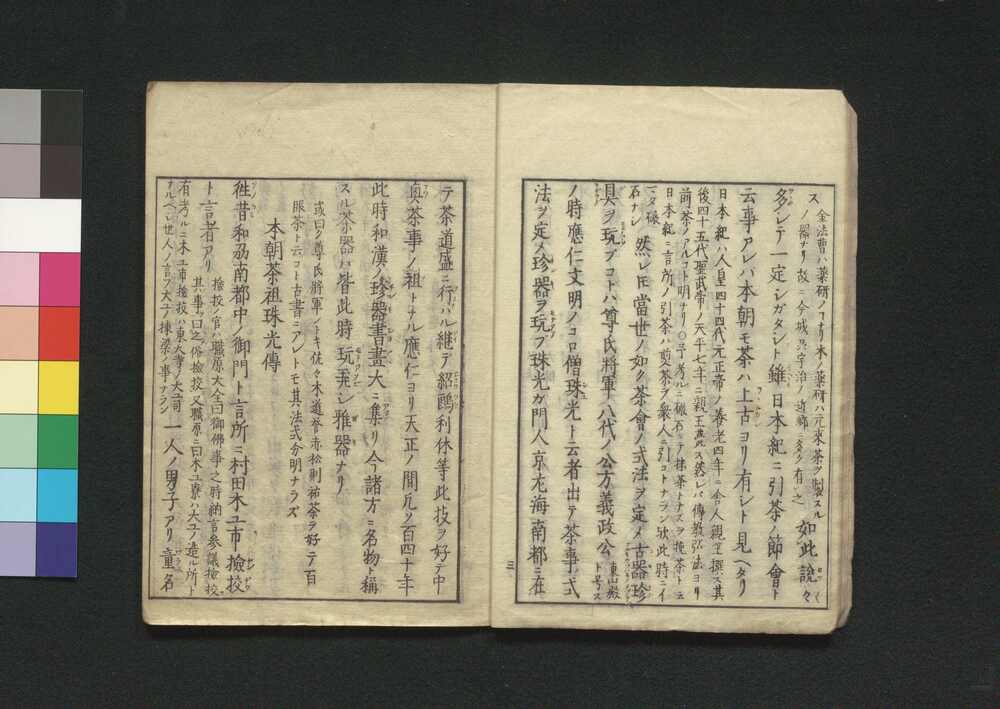 ス 金法曹ハ薬研ノコナリ木ノ薬研ハ元来茶ヲ製スル
ノ器ナリ故ニ今城州宇治ノ近郷ニ多ク有之 如此説々
多シテ一定シガタシト雖日本紀ニ引茶ノ節會ト
云事アレバ本朝モ茶ハ上古ヨリ有シト見ヘタリ
日本紀ハ人皇四十四代元正帝ノ養老四年ニ舎人親王撰ス其
後四十五代聖武帝ノ天平七年ニ親王薨ス然レバ傳教弘法ヨリ
前茶ノアルコト明ナリ〇予考ルニ碾石ニテ抹茶トナスヲ挽茶ト云
日本紀ニ言所ノ引茶ハ煎茶ヲ衆人ニ引コトナラン歟此時ニイ
マダ碾
石ナレ 然レ𪜈當世ノ如ク茶會ノ式法ヲ定メ古器珍
具ヲ玩ブコトハ尊氏將軍八代ノ公方義政公 東山殿ト号ス
ノ時應仁文明ノコロ僧珠光ト云者出テ茶事ノ式
法ヲ定メ珍器ヲ玩ブ珠光ガ門人京尤海南都ニ在
三
テ茶道盛ニ行ハル継テ紹鷗利休等此技ヲ好テ中
奥茶事ノ祖トナル應仁ヨリ天正ノ間凡ソ百四十年
此時和漢ノ珍器書畫大ニ集リ今諸方ニ名物ト稱
スル茶器ハ皆此時玩弄シ雅器ナリ
或曰ク尊氏將軍ノトキ佐々木道誉赤松則祐茶ヲ好テ百
服茶ト云コト古書ニアレトモ其ノ法式分明ナラズ
本朝茶祖珠光傳
徃昔和刕南都中ノ御門ト言所ニ村田木工市撿挍
ト言者アリ 撿挍ノ官ハ職原大全曰御佛事之時納言参議撿挍
其事ヲ曰之俗撿挍又職原ニ曰木工寮ハ大工ノ造ル所ト
有考ルニ木工市撿挍ハ東大寺ノ大工司
ナルベシ世人ノ言フ大工ノ棟梁ノ事ナラン 一人ノ男子アリ童名